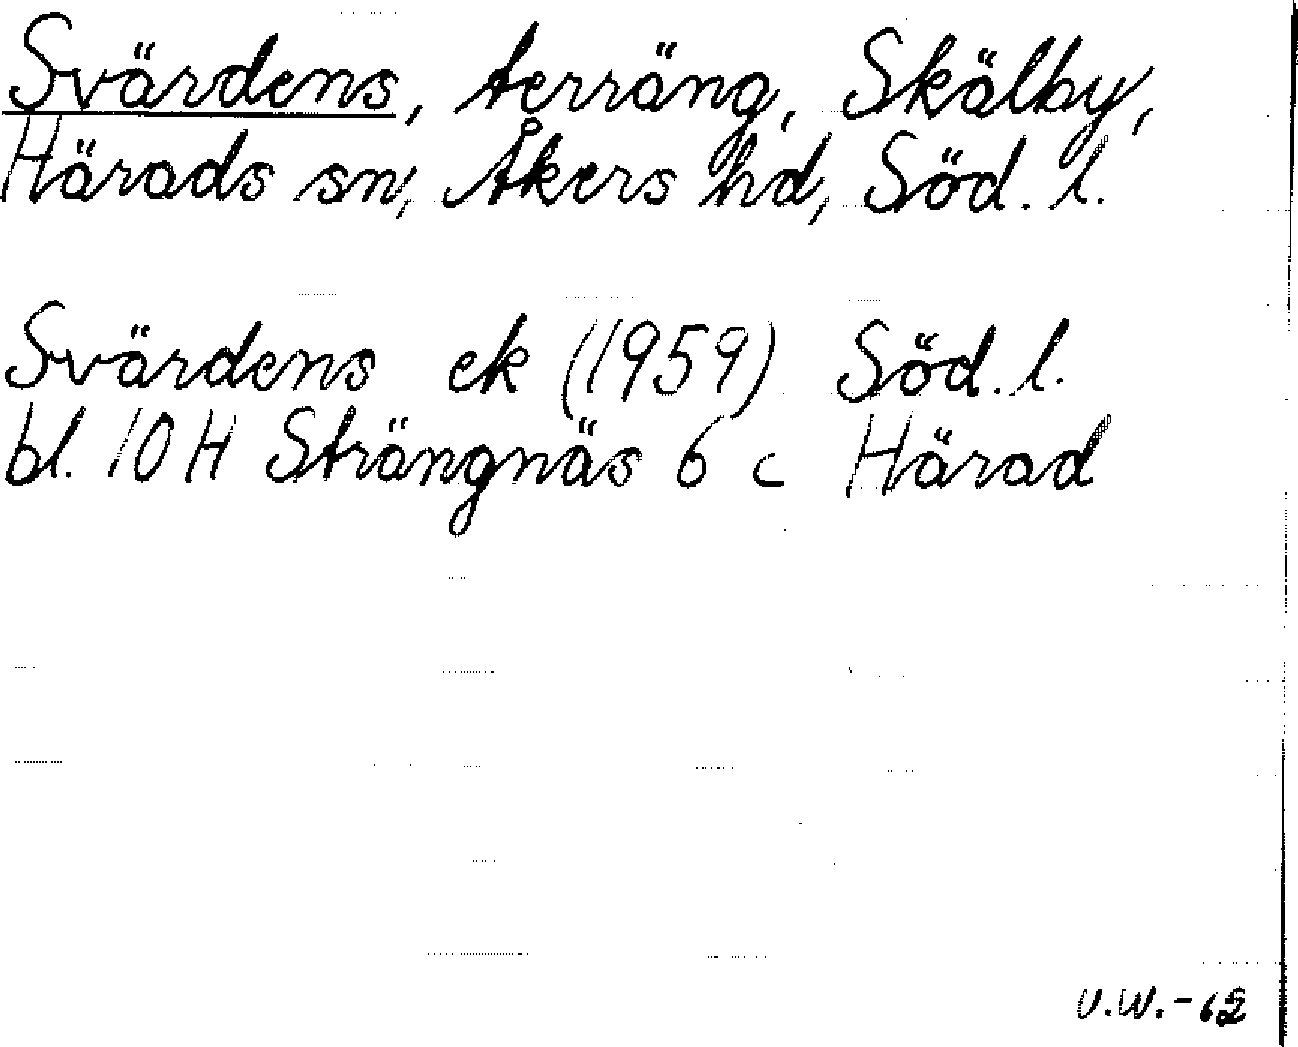 Svärdens, terräng, Skälby,
Härads sn, Åkers hd, Söd. l.
Svärdens ek (1959) Söd. l.
bl. 10 H Strängnäs 6 c Härad
U.W.-62